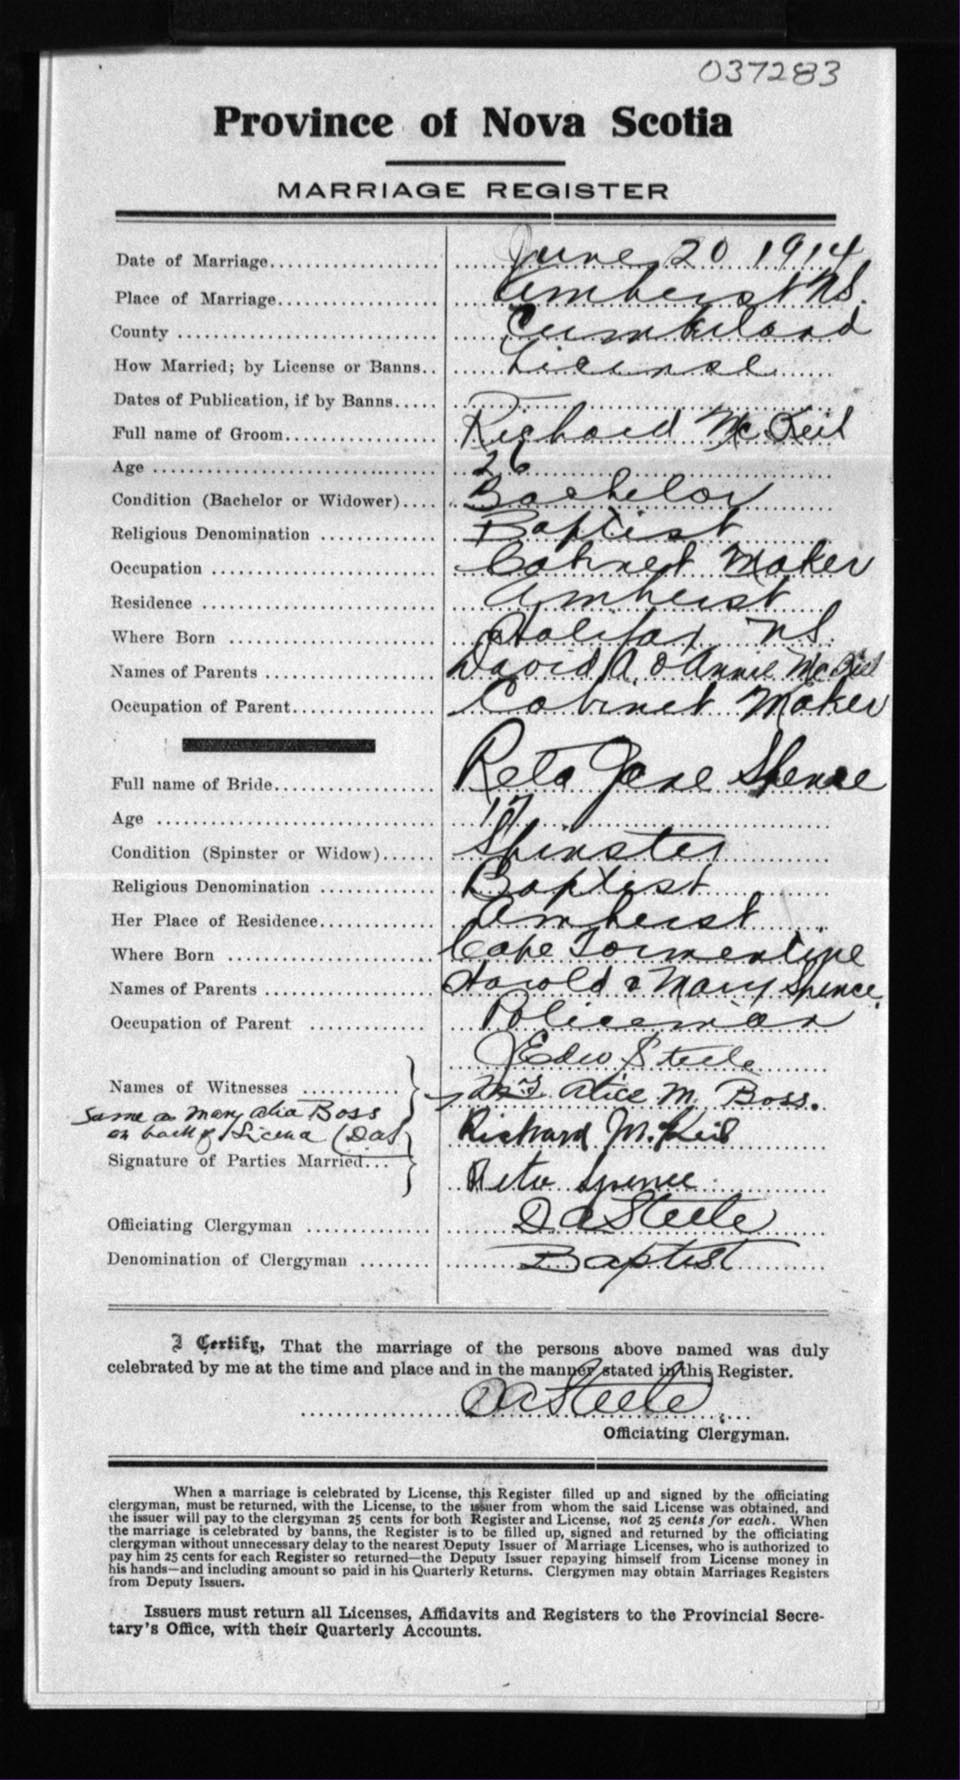 037283
Province of Nova Scotia
MARRIAGE REGISTER
Date of Marriage.................... June 20 1914
Place of Marriage.................... Amherst NS.
County .................... Cumberland
How Married; by License or Banns.. License
Dates of Publication, if by Banns.....
Full name of Groom.................... Richard McKeil
Age .................... 26
Condition (Bachelor or Widower).... Bachelor
Religious Denomination ............ Baptist
Occupation .................... Cabinet Maker
Residence .................... Amherst
Where Born .................... Halifax NS.
Names of Parents .................... David A. & Annie McKeil
Occupation of Parent.................... Cabinet Maker
Full name of Bride.................... Reta Jane Spence
Age .................... 17
Condition (Spinster or Widow)...... Spinster
Religious Denomination ............ Baptist
Her Place of Residence............ Amherst
Where Born .................... Cape Tormentine
Names of Parents .................... Harold & Mary Spence.
Occupation of Parent ............ Policeman
Edw Steele
Names of Witnesses ............ Mrs Alice M. Boss.
Same as Mary Boss
on back of License (DAS)
Richard McKeil
Signature of Parties Married...
Reta Spence
Officiating Clergyman ............ D A Steele
Denomination of Clergyman ........ Baptist
I Certify, That the marriage of the persons above named was duly
celebrated by me at the time and place and in the manner stated in this Register.
D A Steele
Officiating Clergyman.
When a marriage is celebrated by License, this Register filled up and signed by the officiating
clergyman, must be returned, with the License, to the issuer from whom the said License was obtained, and
the issuer will pay to the clergyman 25 cents for both Register and License, not 25 cents for each. When
the marriage is celebrated by banns, the Register is to be filled up, signed and returned by the officiating
clergyman without unnecessary delay to the nearest Deputy Issuer of Marriage Licenses, who is authorized to
pay him 25 cents for each Register so returned—the Deputy Issuer repaying himself from License money in
his hands—and including amount so paid in his Quarterly Returns. Clergymen may obtain Marriages Registers
from Deputy Issuers.
Issuers must return all Licenses, Affidavits and Registers to the Provincial Secre-
tary's Office, with their Quarterly Accounts.